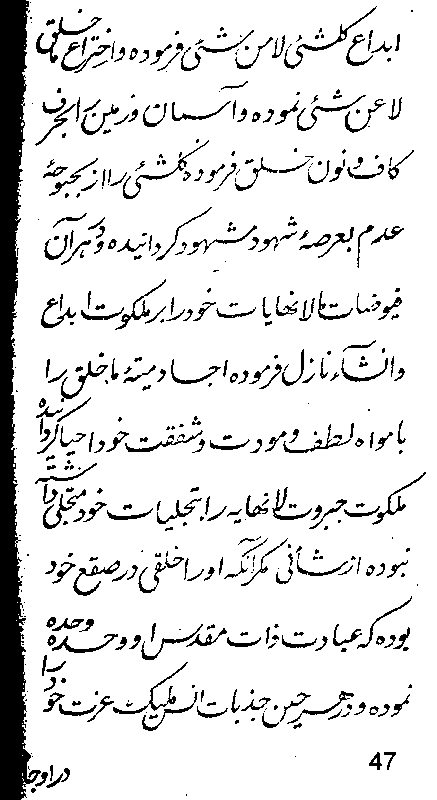 ابداع کلشئی لامن شئی فرموده و اختراع ماخلق
لاعن شئی نموده و آسمان و زمین را بحرف
کاف و نون خلق فرموده کلشئی را از بحبوحهٔ
عدم بعرصهٔ شهود مشهود کردانیده و در هر آن
فیوضات مالانهایات خود را بر ملکوت ابداع
وانشاء نازل فرموده اجساد میتهٔ ماخلق را
با مواه لطف و مودت و شفقت خود احیا کردانیده
ملکوت جبروت لانهایه را بتجلیات خود متجلی داشته
نبوده از شأنی مگر آنکه او را خلقی در صقع خود
بوده که عبادت ذات مقدس او وحده وحده
نموده و در هر حین جذبات انس ملیک عزت خود را
47
در اوجا